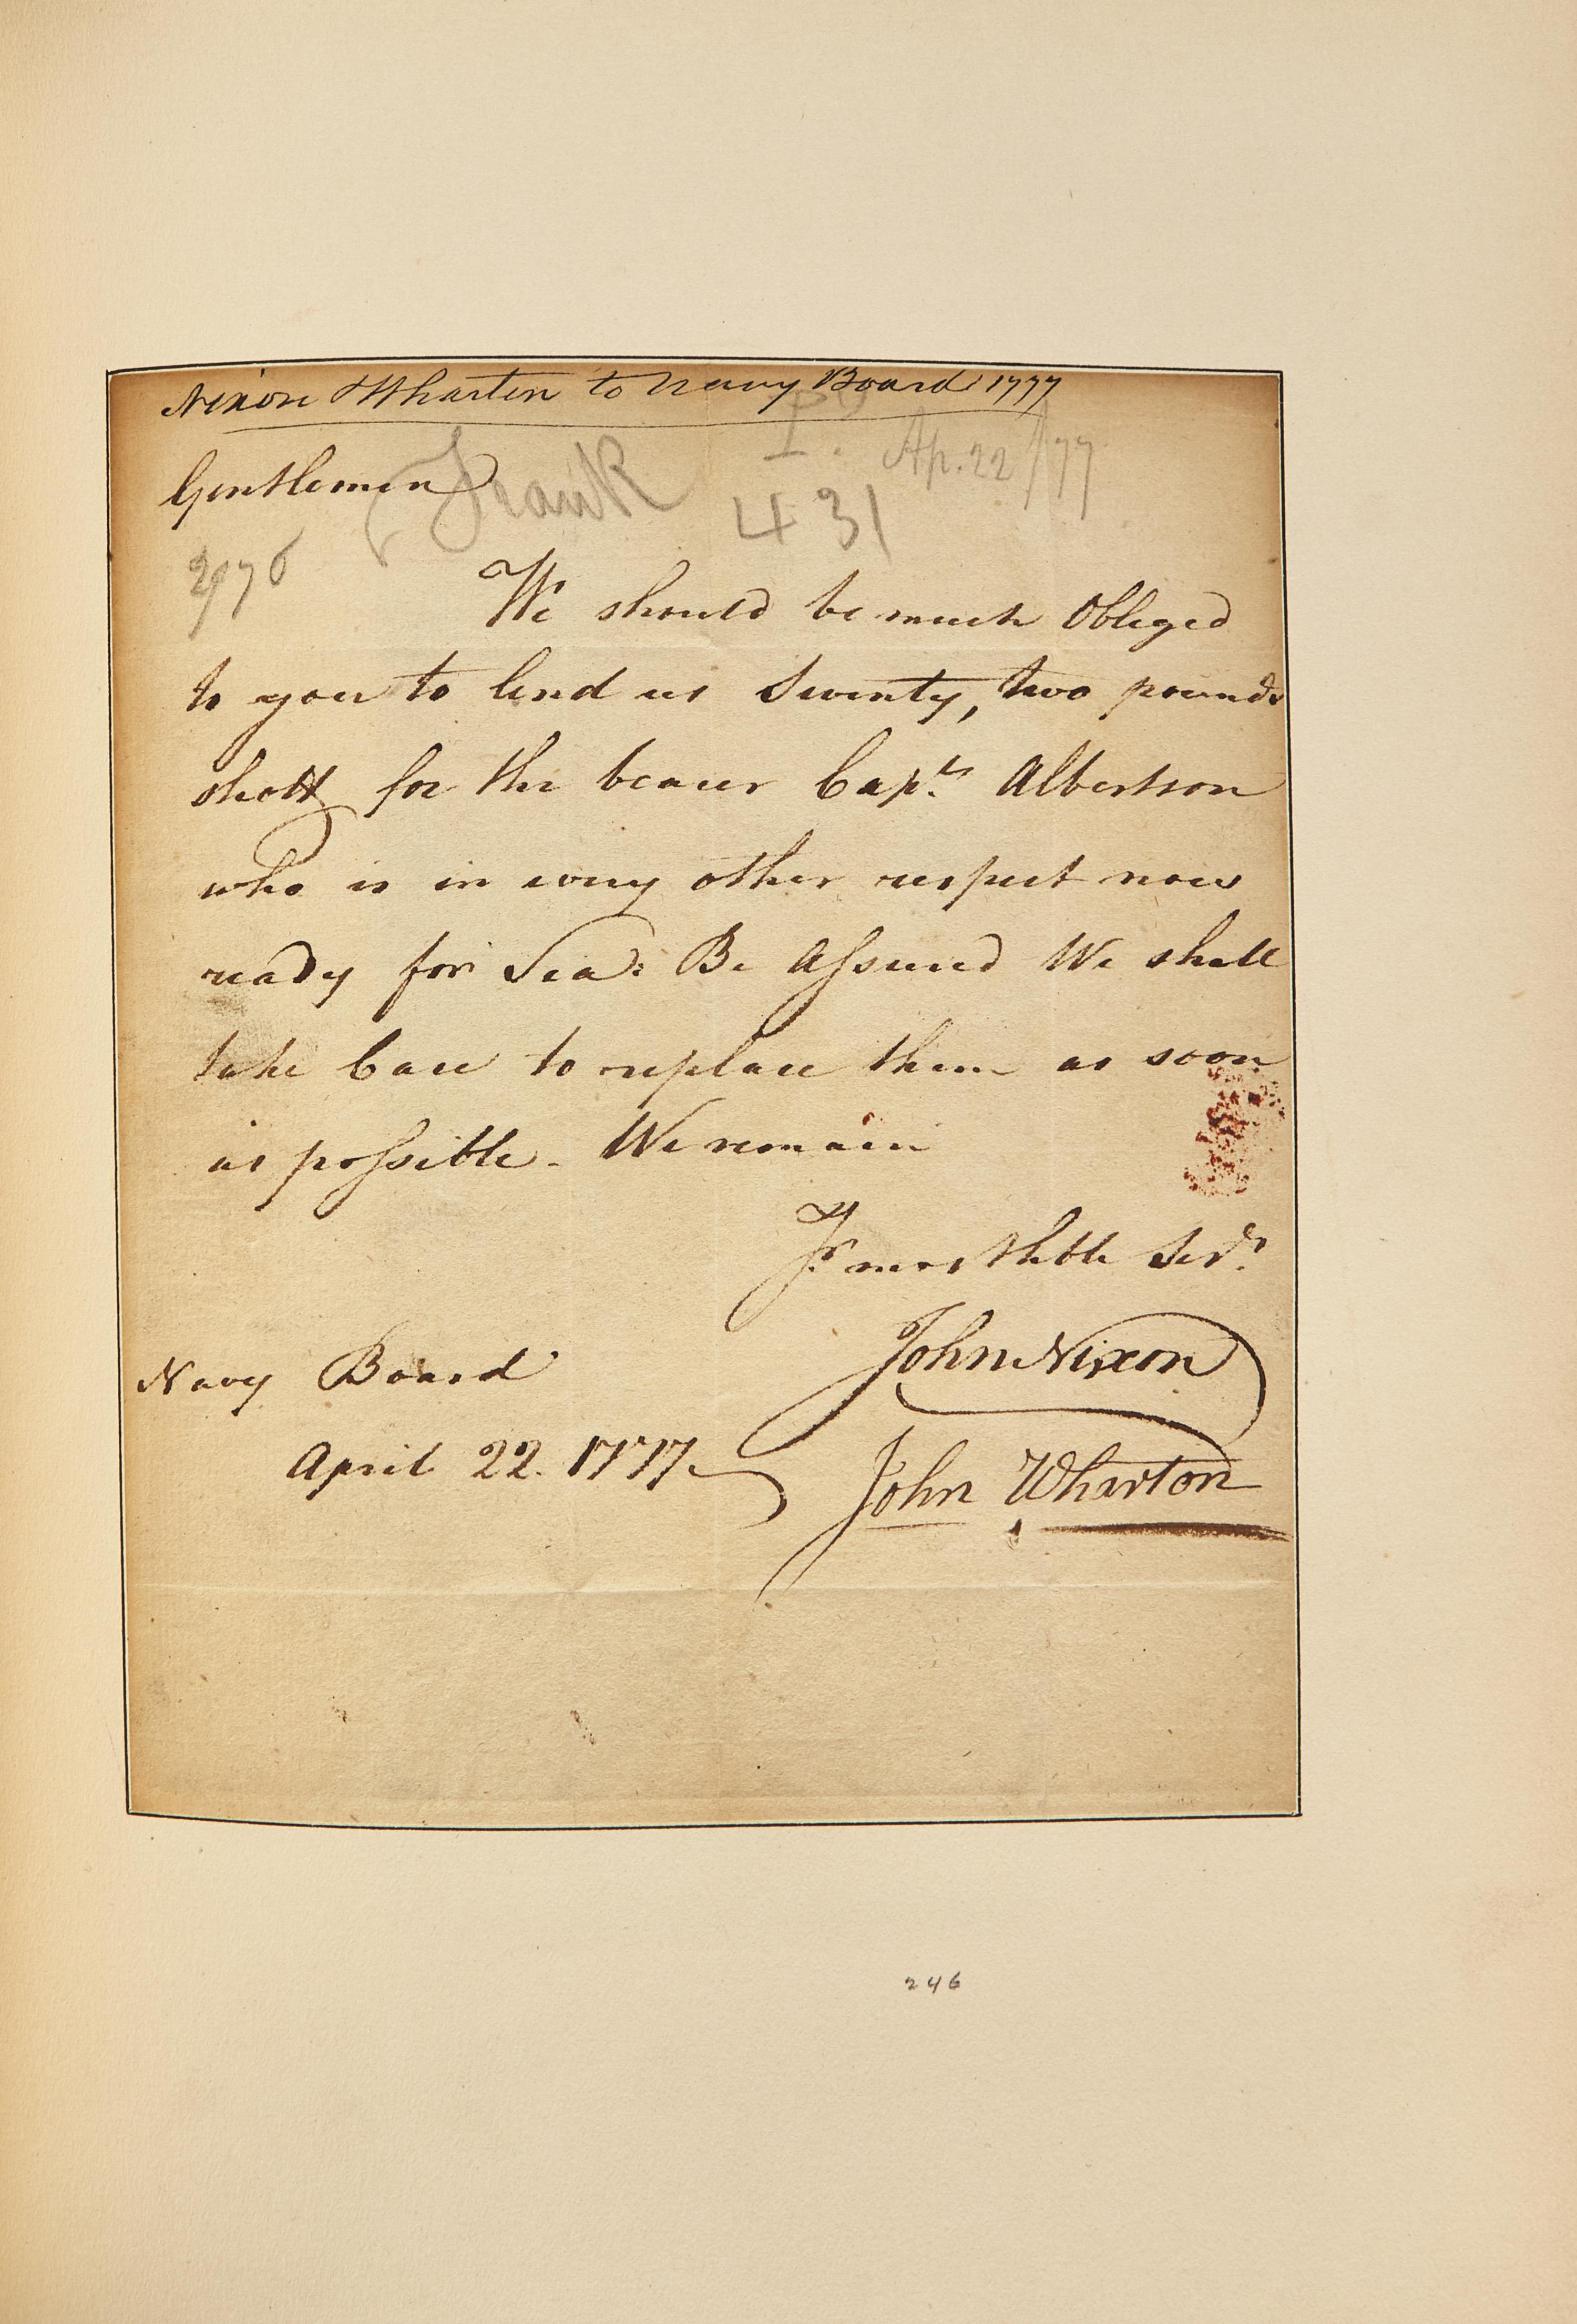 Nixon & Wharton to Navy Board 1777
P
I. Ap. 22 / 77
Gentlemen
Frank
431
2/76
We should be much Obliged
to you to lend us Twenty, two pounds
shott for the bearer Capt. Albertson
who is in every other respect now
ready for Sea: Be Assured We shall
take Care to replace them as soon
as possible. We remain
Yr. most hble Servts.
John Nixon
John Wharton
Navy Board
April 22. 1777
246